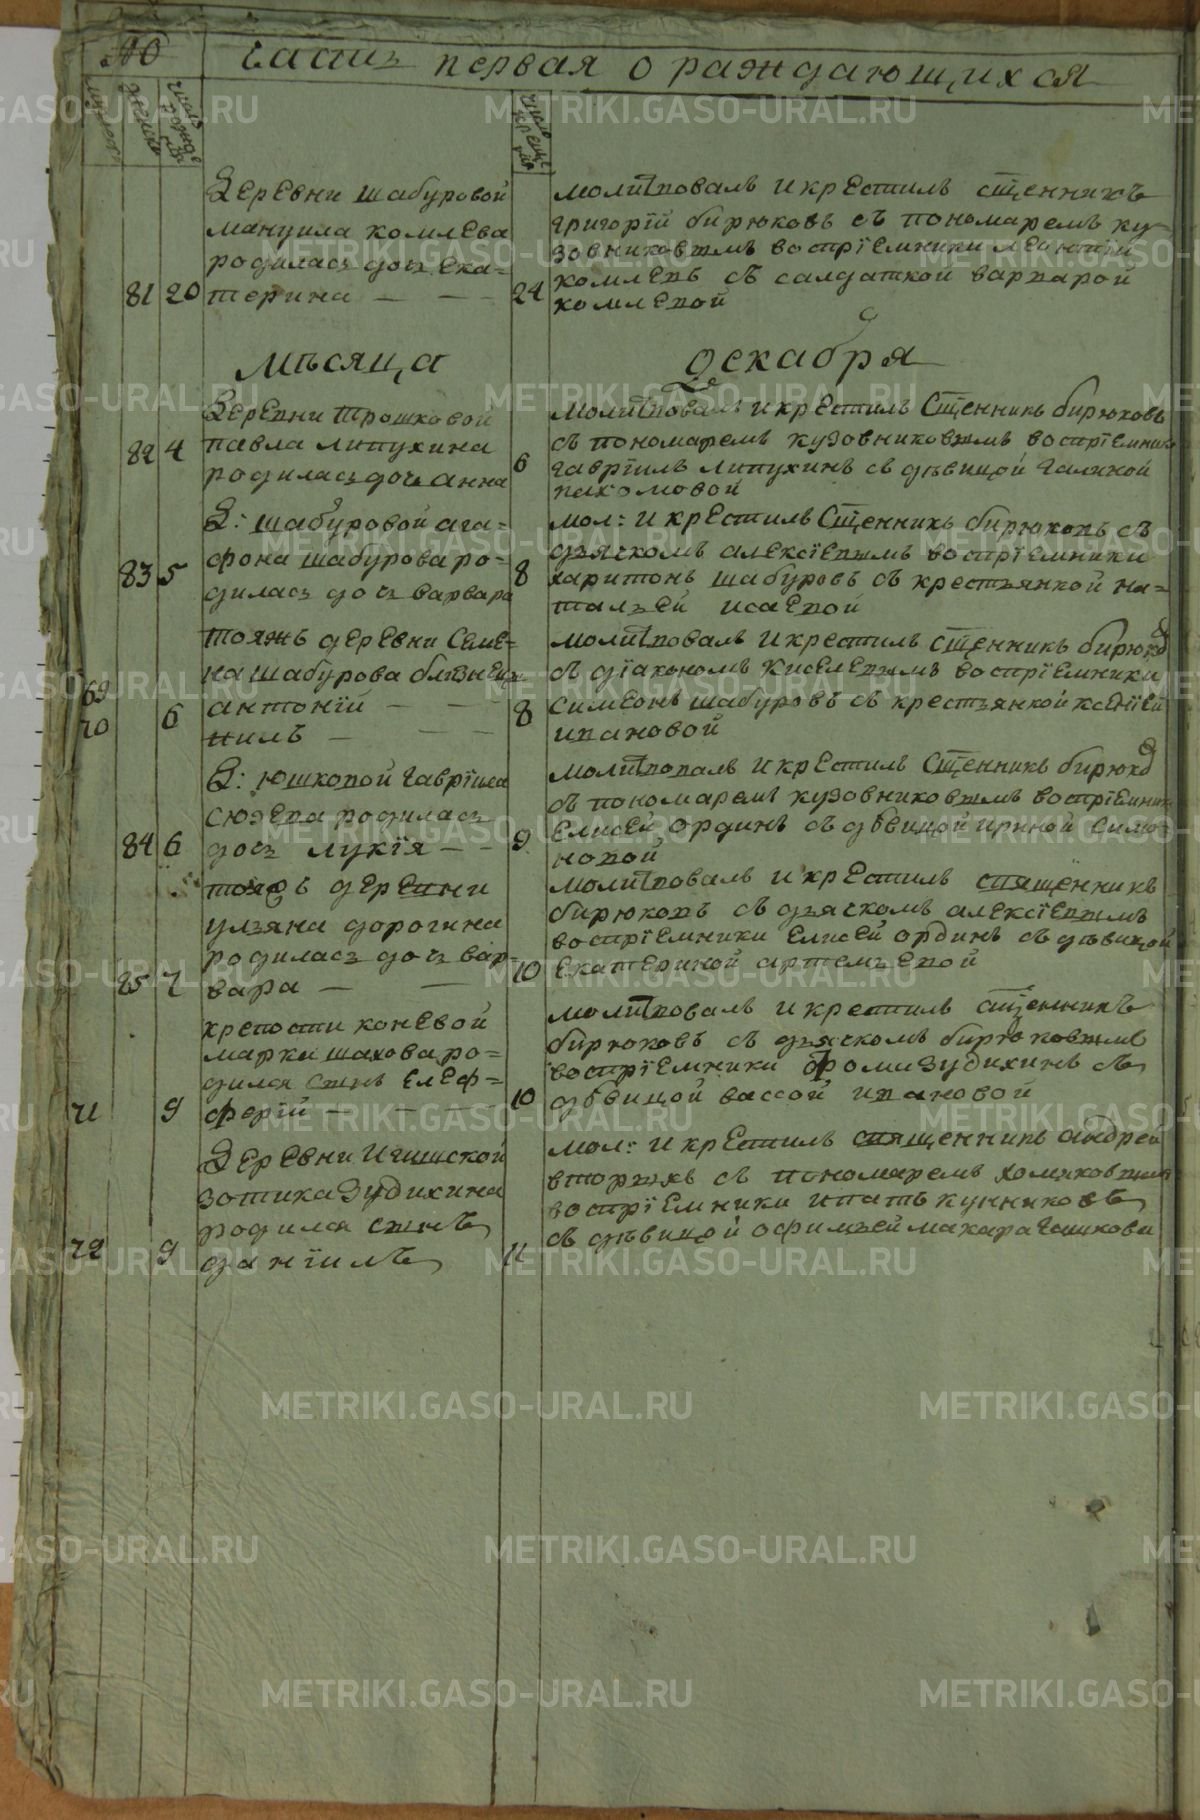 № часть первая о раждающихся
мужеск женска число рожде нїя число креще нїя
Деревни шабуровой
мануила комлева
родилась дочь ека=
81 20 терина — — —
24
молитвовалъ и крестилъ сщенникъ
григорїй бирюковъ съ пономаремъ ку=
зовниковымъ воспрїемники леонтїй
комлевъ съ салдаткой варварой
комлевой
мѣсяца декабря
Деревни трошковой
82 4 павла липухина
родилась дочь анна
6
молитвовалъ и крестилъ сщенникъ бирюковъ
съ пономаремъ кузовниковымъ воспрїемники
гаврїилъ липухинъ съ дѣвицой галиной
пахомовой
Д: шабуровой ага=
фона шабурова ро=
83 5 дилась дочь варвара
8
мол: и крестилъ сщенникъ бирюковъ съ
дьячкомъ алексїевымъ воспрїемники
харитонъ шабуровъ съ крестьянкой на=
тальей исаевой
тояжъ деревни семе=
на шабурова близнецы
69 антонїй — — —
70 6 нилъ — — —
8
молитвовалъ и крестилъ сщенникъ бирюков
съ дїакономъ киселевымъ воспрїемники
симеонъ шабуровъ съ крестьянкой ксенїей
ивановой
Д: юшковой гаврїила
сюзева родилась
84 6 дочь лукїя — —
9
молитвовалъ и крестилъ сщенникъ бирюков
съ пономаремъ кузовниковымъ воспрїемники
елисей ординъ съ дѣвицой ириной симо=
новой
тояжъ деревни
ульяна дорогина
родилась дочь вар=
85 7 вара — —
10
молитвовалъ и крестилъ священникъ
бирюковъ съ дьячкомъ алексїевымъ
воспрїемники елисей ординъ съ дѣвицой
екатериной артемьевой
крепости коневой
марка шахова ро=
дился сынъ елеф=
71 9 ферїй — — —
10
молитвовалъ и крестилъ сщенникъ
бирюковъ съ дьячкомъ бирюковымъ
воспрїемники фома зудихинъ съ
дѣвицой вассой ивановой
Деревни игишской
зотика зудихина
родился сынъ
72 9 данїилъ
11
мол: и крестилъ священникъ андрей
вторыхъ съ пономаремъ хомяковымъ
воспрїемники ипатъ кунниковъ
съ дѣвицой офимьей макара гашкова